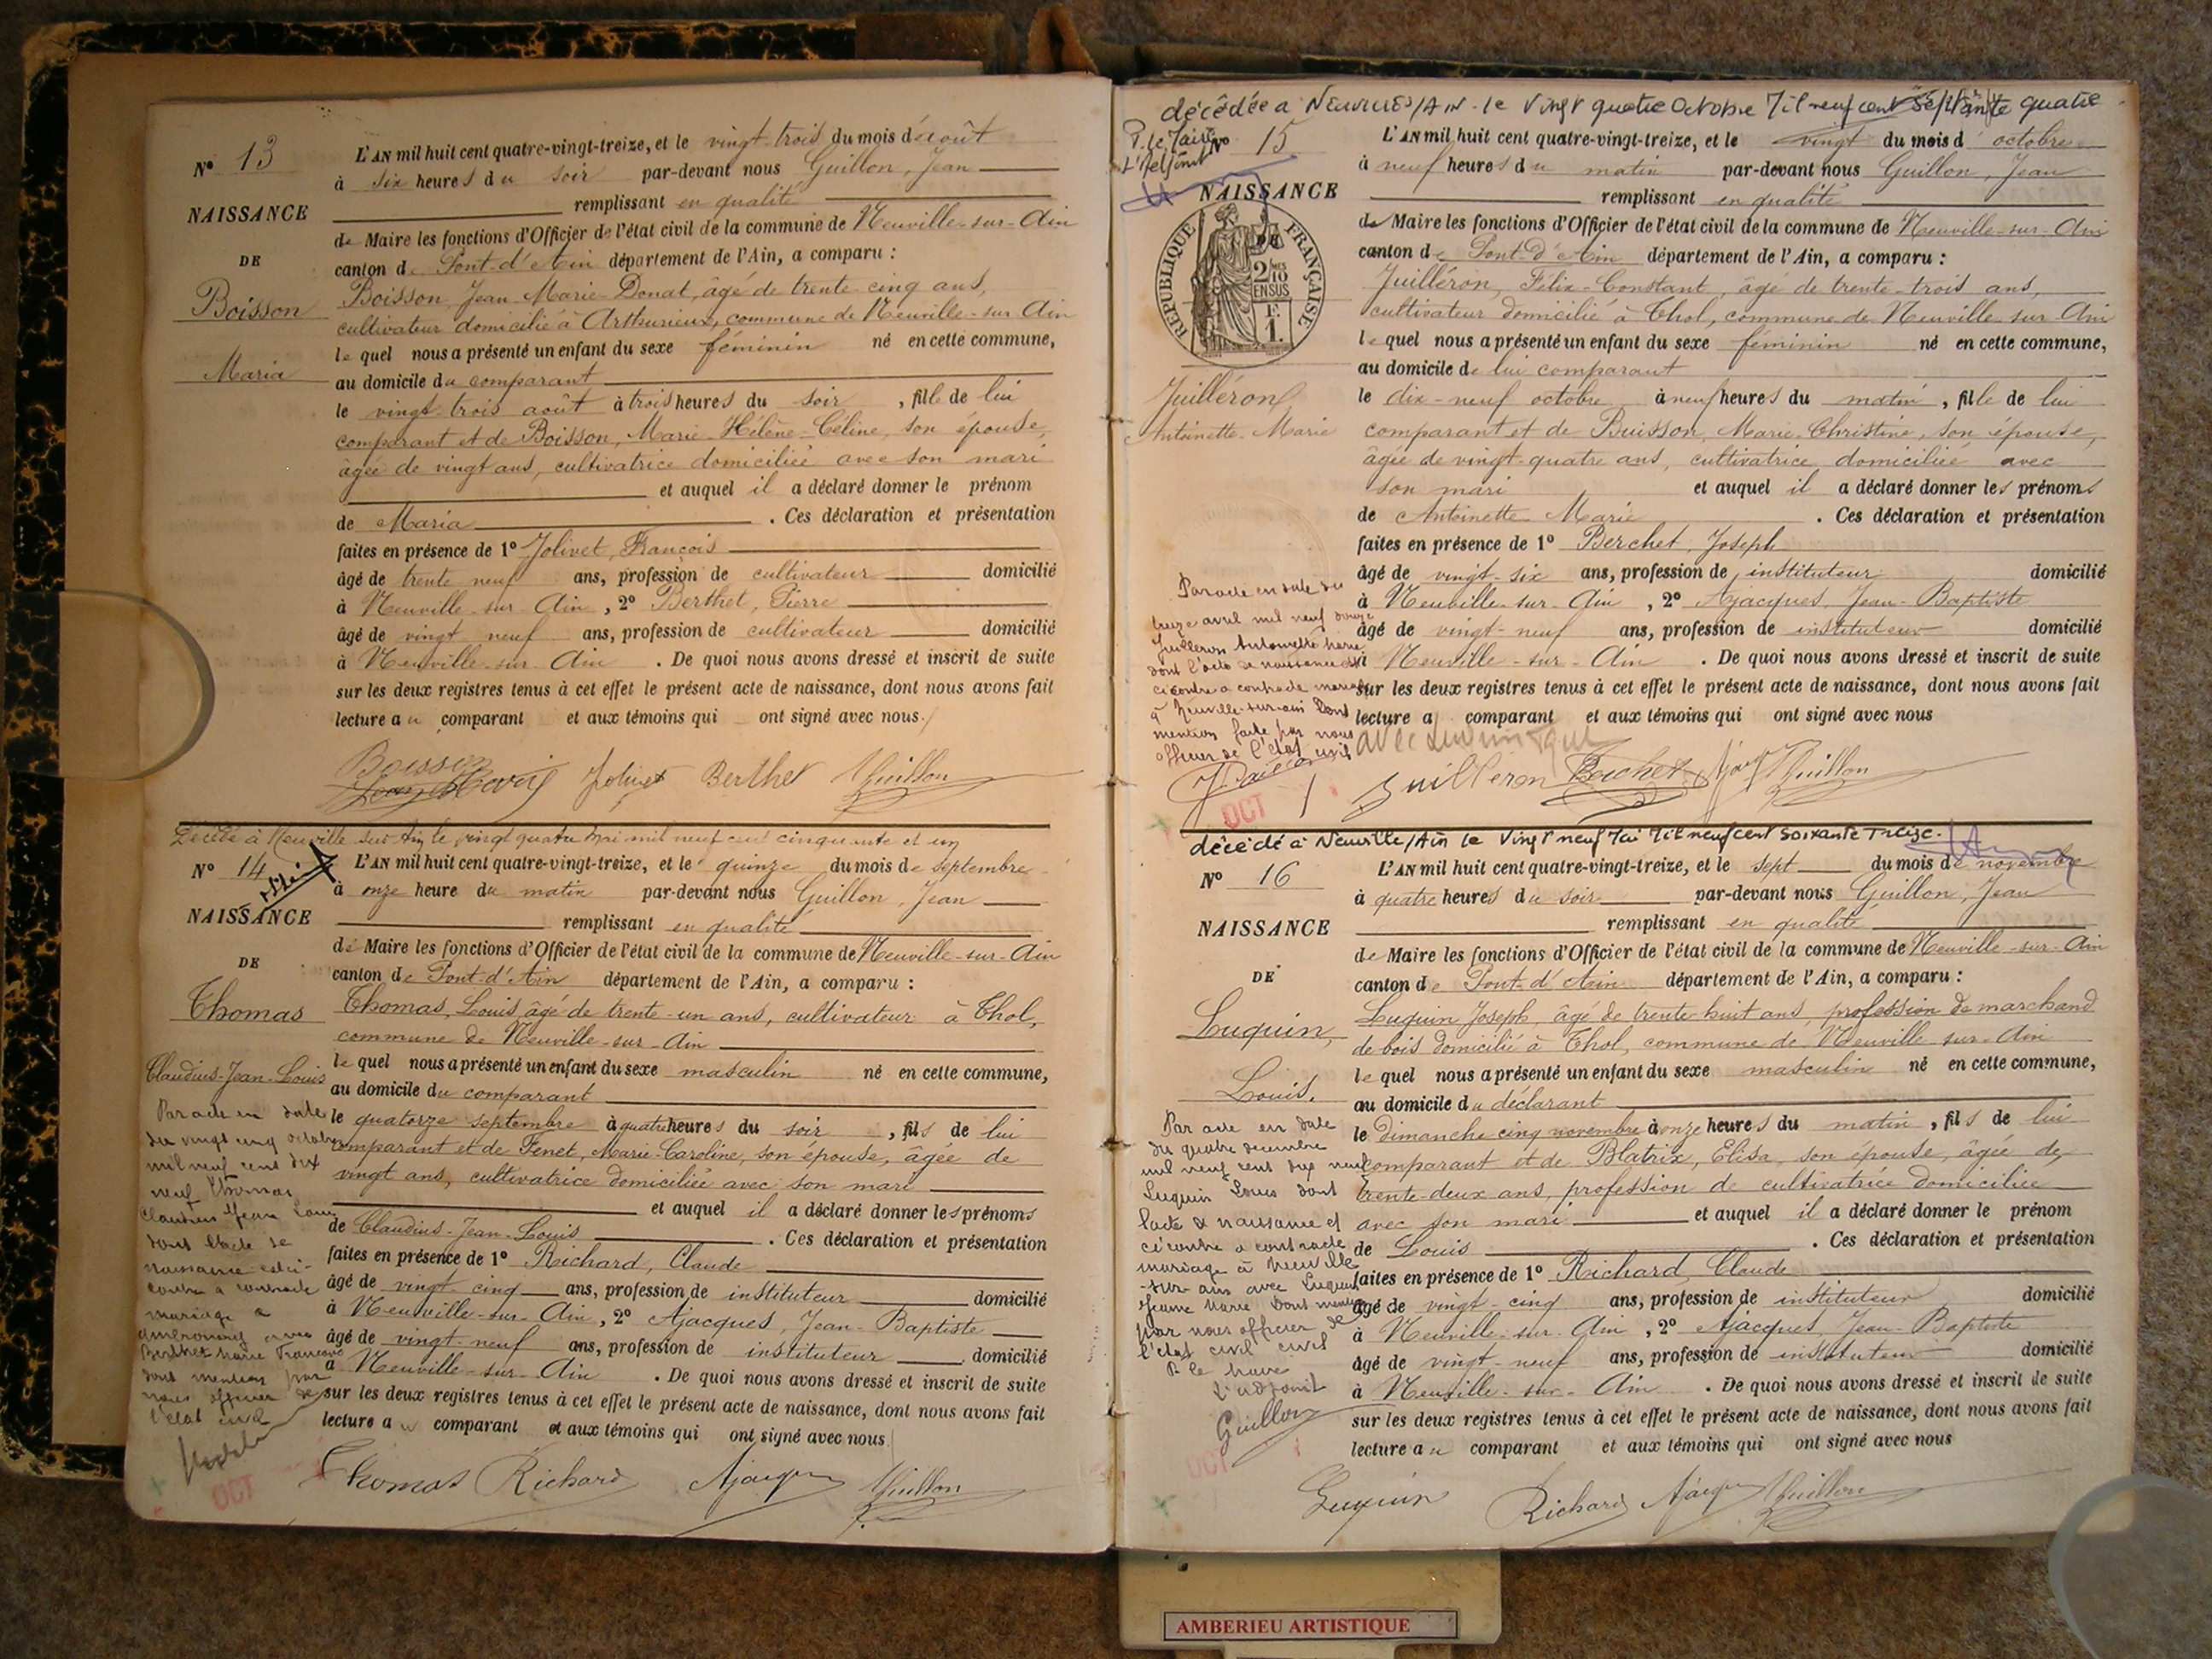 Nº 13
NAISSANCE
DE
Boisson
Maria
L'AN mil huit cent quatre-vingt-treize, et le vingt-trois du mois d'août
à six heures du soir par-devant nous Guillon, Jean
remplissant en qualité
de Maire les fonctions d'Officier de l'état civil de la commune de Neuville-sur-Ain
canton de Pont-d'Ain département de l'Ain, a comparu :
Boisson, Jean Marie Donat, âgé de trente cinq ans,
cultivateur domicilié à Arthurieux, commune de Neuville-sur Ain
lequel nous a présenté un enfant du sexe féminin né en cette commune,
au domicile du comparant
le vingt trois août à trois heures du soir, fille de lui
comparant et de Boisson, Marie-Hélène-Céline, son épouse,
âgée de vingt ans, cultivatrice domiciliée avec son mari
et auquel il a déclaré donner le prénom
de Maria. Ces déclaration et présentation
faites en présence de 1º Jolivet, François
âgé de trente neuf ans, profession de cultivateur domicilié
à Neuville-sur-Ain, 2º Berthet, Pierre
âgé de vingt neuf ans, profession de cultivateur domicilié
à Neuville-sur-Ain. De quoi nous avons dressé et inscrit de suite
sur les deux registres tenus à cet effet le présent acte de naissance, dont nous avons fait
lecture au comparant et aux témoins qui ont signé avec nous.
Boisson
Jolivet Berthet Guillon
Décédé à Neuville sur Ain le vingt quatre Mai mil neuf cent cinquante et un
Nº 14
NAISSANCE
DE
Thomas
Claudius-Jean-Louis
L'AN mil huit cent quatre-vingt-treize, et le quinze du mois de septembre
à onze heure du matin par-devant nous Guillon, Jean
remplissant en qualité
de Maire les fonctions d'Officier de l'état civil de la commune de Neuville-sur-Ain
canton de Pont-d'Ain département de l'Ain, a comparu :
Thomas, Louis, âgé de trente-un ans, cultivateur à Thol,
commune de Neuville-sur-Ain
lequel nous a présenté un enfant du sexe masculin né en cette commune,
au domicile du comparant
le quatorze septembre à quatre heures du soir, fils de lui
comparant et de Fenet, Marie-Caroline, son épouse, âgée de
vingt ans, cultivatrice domiciliée avec son mari
et auquel il a déclaré donner les prénoms
de Claudius-Jean-Louis. Ces déclaration et présentation
faites en présence de 1º Richard, Claude
âgé de vingt cinq ans, profession de instituteur domicilié
à Neuville-sur-Ain, 2º Ajacques, Jean-Baptiste
âgé de vingt-neuf ans, profession de instituteur domicilié
à Neuville-sur-Ain. De quoi nous avons dressé et inscrit de suite
sur les deux registres tenus à cet effet le présent acte de naissance, dont nous avons fait
lecture au comparant et aux témoins qui ont signé avec nous
Par acte en date
du vingt cinq octobre
mil neuf cent dix
neuf Thomas
Claudius Jean Louis
dont l'acte de
naissance est ci-
contre a contracté
mariage a
avec
Berthet Marie
dont mention par
nous officier de
l'état civil
OCT
Thomas Richard Ajacques Guillon
décédée a Neuville s/Ain le Vingt quatre Octobre Mil neuf cent septante quatre
P. le Maire
L'Adjoint
Nº 15
NAISSANCE
DE
RÉPUBLIQUE FRANÇAISE
2/10
EN SUS
1F.
Juilléron
Antoinette-Marie
L'AN mil huit cent quatre-vingt-treize, et le vingt du mois d'octobre
à neuf heures du matin par-devant nous Guillon, Jean
remplissant en qualité
de Maire les fonctions d'Officier de l'état civil de la commune de Neuville-sur-Ain
canton de Pont-d'Ain département de l'Ain, a comparu :
Juilléron, Félix-Constant, âgé de trente-trois ans,
cultivateur domicilié à Thol, commune de Neuville-sur-Ain
lequel nous a présenté un enfant du sexe féminin né en cette commune,
au domicile de lui comparant
le dix-neuf octobre à neuf heures du matin, fille de lui
comparant et de Buisson, Marie-Christine, son épouse,
âgée de vingt-quatre ans, cultivatrice domiciliée avec
son mari et auquel il a déclaré donner les prénoms
de Antoinette-Marie. Ces déclaration et présentation
faites en présence de 1º Berchet, Joseph
âgé de vingt-six ans, profession de instituteur domicilié
à Neuville-sur-Ain, 2º Ajacques, Jean-Baptiste
âgé de vingt-neuf ans, profession de instituteur domicilié
à Neuville-sur-Ain. De quoi nous avons dressé et inscrit de suite
sur les deux registres tenus à cet effet le présent acte de naissance, dont nous avons fait
lecture a comparant et aux témoins qui ont signé avec nous
Par acte en date du
treize avril mil neuf douze
Juilleron Antoinette Marie
dont l'acte de naissance est
ci contre a contracté mariage
à Neuville-sur-ain dont
mention faite par nous
officier de l'état civil
avec
OCT
Juilleron Berchet Guillon
décédé à Neuville/Ain le Vingt neuf Mai Mil neuf cent soixante Treize.
Nº 16
NAISSANCE
DE
Luquin,
Louis.
L'AN mil huit cent quatre-vingt-treize, et le sept du mois de novembre
à quatre heures du soir par-devant nous Guillon, Jean
remplissant en qualité
de Maire les fonctions d'Officier de l'état civil de la commune de Neuville-sur-Ain
canton de Pont-d'Ain département de l'Ain, a comparu :
Luquin Joseph, âgé de trente-huit ans, profession de marchand
de bois domicilié à Thol, commune de Neuville-sur-Ain
lequel nous a présenté un enfant du sexe masculin né en cette commune,
au domicile du déclarant
le dimanche cinq novembre à onze heures du matin, fils de lui
comparant et de Blatrix, Elisa, son épouse, âgée de
trente-deux ans, profession de cultivatrice domiciliée
avec son mari et auquel il a déclaré donner le prénom
de Louis. Ces déclaration et présentation
faites en présence de 1º Richard, Claude
âgé de vingt-cinq ans, profession de instituteur domicilié
à Neuville-sur-Ain, 2º Ajacques Jean-Baptiste
âgé de vingt-neuf ans, profession de instituteur domicilié
à Neuville-sur-Ain. De quoi nous avons dressé et inscrit de suite
sur les deux registres tenus à cet effet le présent acte de naissance, dont nous avons fait
lecture au comparant et aux témoins qui ont signé avec nous
Par acte en date
du quatre decembre
mil neuf cent dix neuf
Luquin Louis dont
l'acte de naissance est
ci contre a contracté
mariage à Neuville
-sur-ain avec Luquin
Jeanne Marie dont mention
par nous officier de
l'état civil civil
P. le maire
L'adjoint
Guillon
OCT
Luquin Richard Ajacques Guillon
AMBERIEU ARTISTIQUE